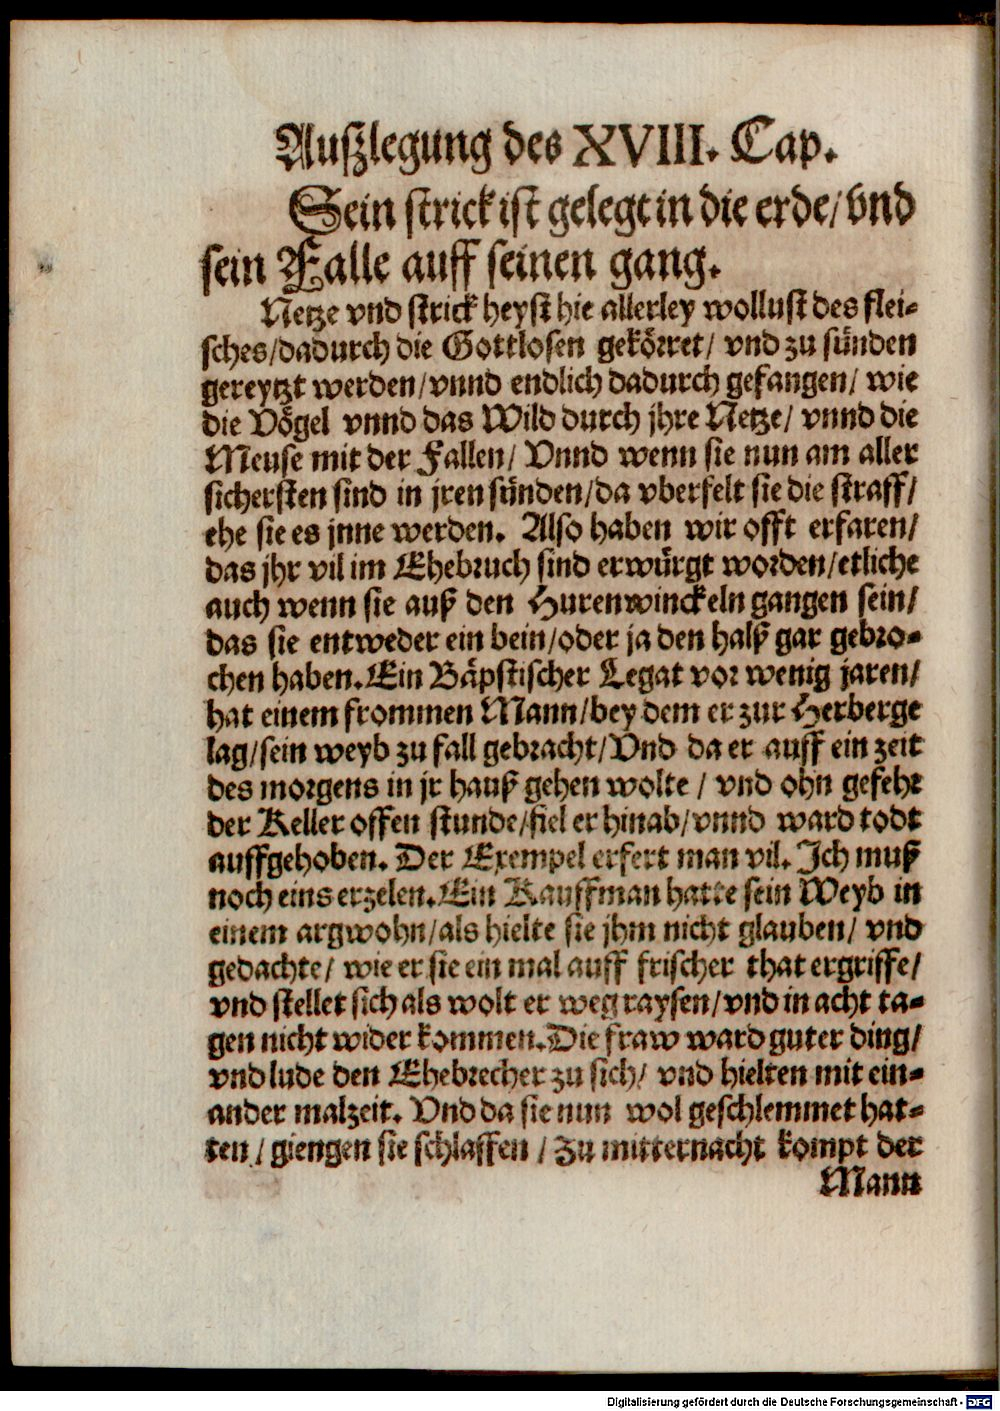 Außlegung des XVIII. Cap.
Sein strick ist gelegt in die erde/ vnd
sein Falle auff seinen gang.
Netze vnd strick heyst hie allerley wollust des flei-
sches/ dadurch die Gottlosen gekörret/ vnd zu sünden
gereytzt werden/ vnnd endlich dadurch gefangen/ wie
die Vögel vnnd das Wild durch jhre Netze/ vnnd die
Meuse mit der Fallen/ Vnnd wenn sie nun am aller
sichersten sind in jren sünden/ da vberfelt sie die straff/
ehe sie es jnne werden. Also haben wir offt erfaren/
das jhr vil im Ehebruch sind erwürgt worden/ etliche
auch wenn sie auß den Hurenwinckeln gangen sein/
das sie entweder ein bein/ oder ja den halß gar gebro-
chen haben. Ein Bäpstischer Legat vor wenig jaren/
hat einem frommen Mann/ bey dem er zur Herberge
lag/ sein weyb zu fall gebracht/ Vnd da er auff ein zeit
des morgens in jr hauß gehen wolte / vnd ohn gefehr
der Keller offen stunde/ fiel er hinab/ vnnd ward todt
auffgehoben. Der Exempel erfert man vil. Ich muß
noch eins erzelen. Ein Kauffman hatte sein Weyb in
einem argwohn/ als hielte sie jhm nicht glauben/ vnd
gedachte/ wie er sie ein mal auff frischer that ergriffe/
vnd stellet sich als wolt er weg raysen/ vnd in acht ta-
gen nicht wider kommen. Die fraw ward guter ding/
vnd lude den Ehebrecher zu sich/ vnd hielten mit ein-
ander malzeit. Vnd da sie nun wol geschlemmet hat-
ten / giengen sie schlaffen / Zu mitternacht kompt der
Mann
Digitalisierung gefördert durch die Deutsche Forschungsgemeinschaft - DFG